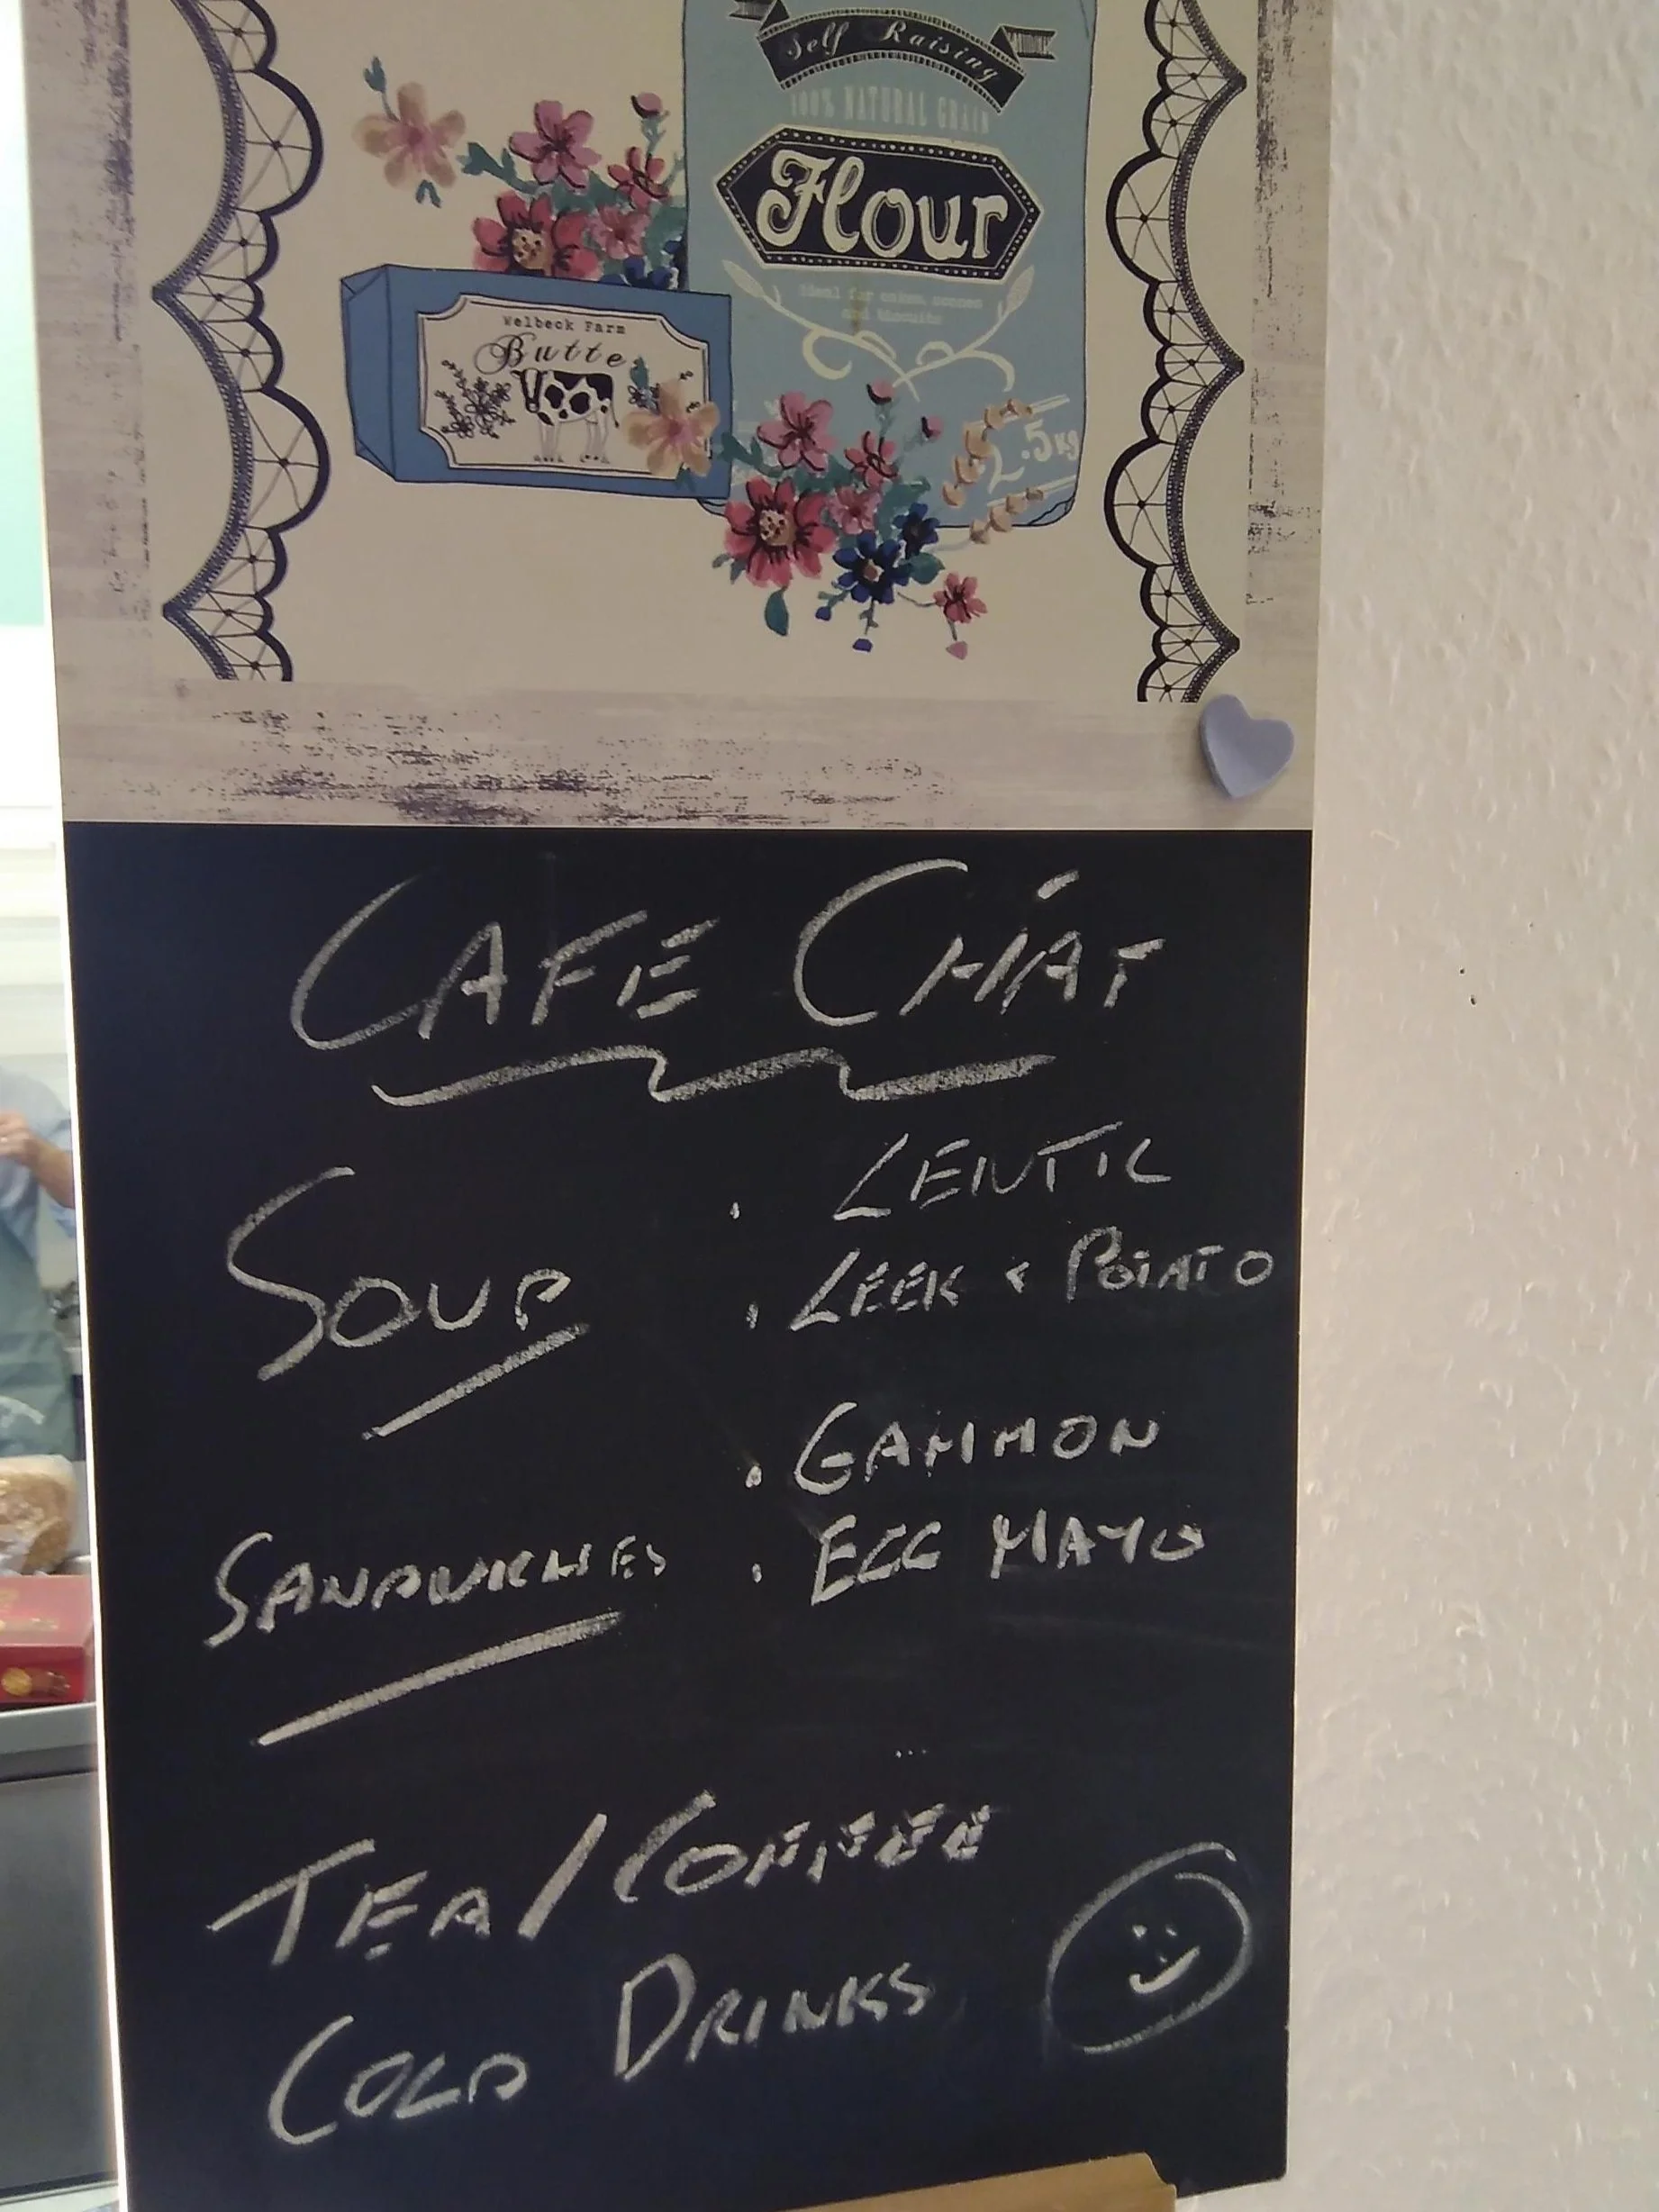 Self Raising
100% NATURAL GRAIN
Flour
Ideal for cakes, scones
and biscuits
Welbeck Farm
Butte
2.5kg
CAFE CHAT
SOUP
. LENTIL
. LEEK & POTATO
SANDWICHES
. GAMMON
. EGG MAYO
TEA/COFFEE
COLD DRINKS